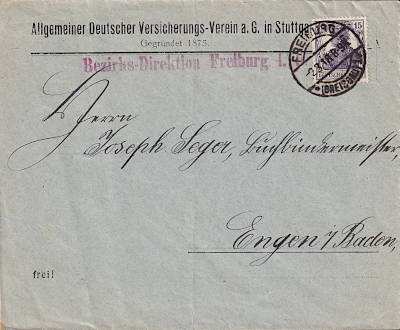 Allgemeiner Deutscher Versicherungs-Verein a. G. in Stuttgart
Gegründet 1875.
15
FREIBURG
(BREISGAU)
Bezirks-Direktion Freiburg i.
Herrn
Joseph Seger, Buchbindermeister,
Engen i/Baden,
frei!